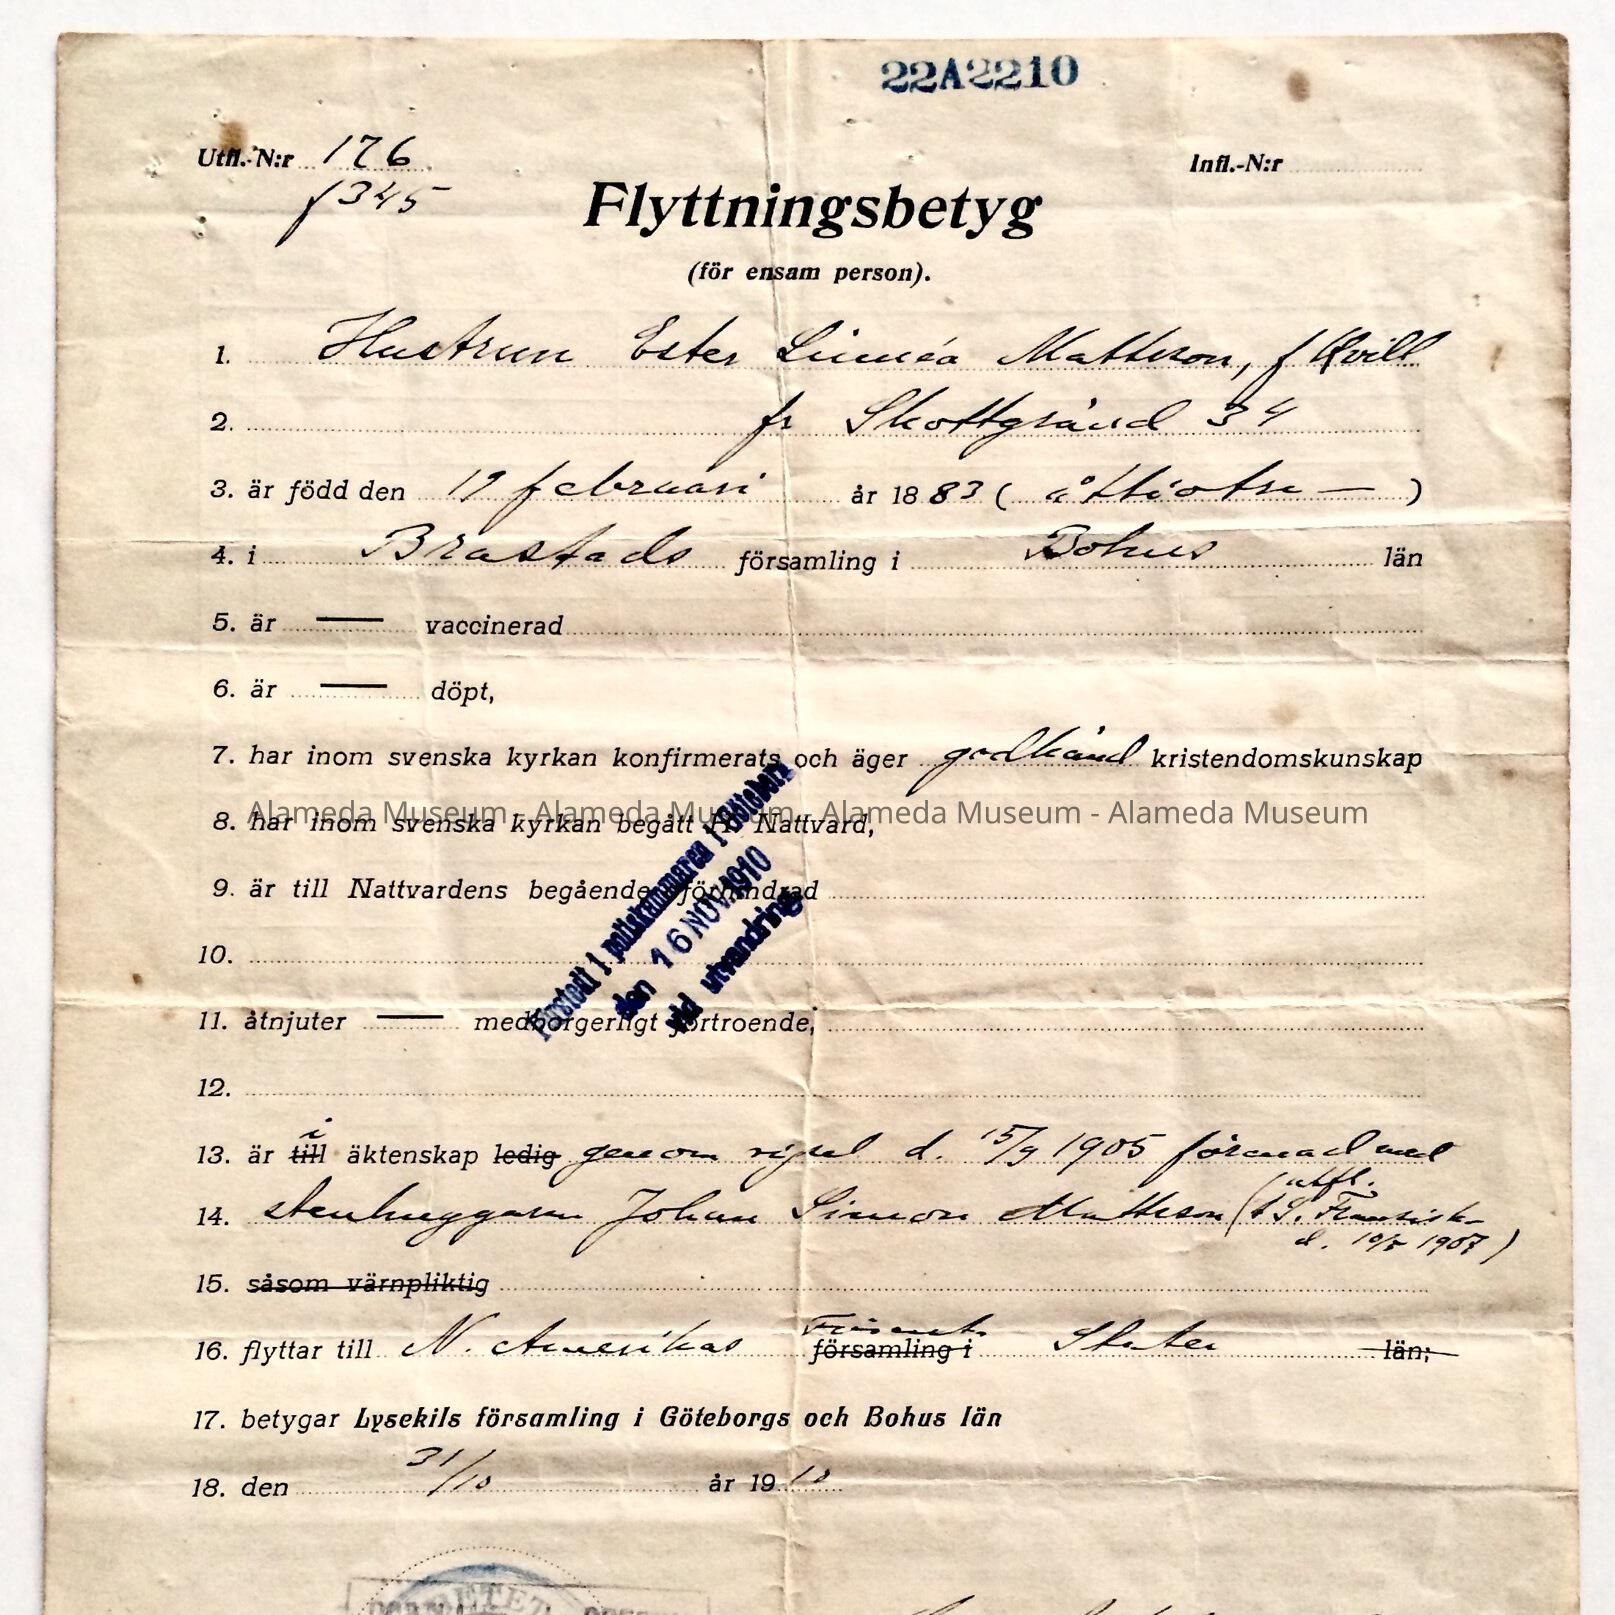 22A2210
Utfl.-N:r 176 Infl.-N:r
f 345
Flyttningsbetyg
(för ensam person).
1. Hustrun Ester Linnéa Mattsson, f Qvill
2. fr Skottgränd 34
3. är född den 19 februari år 1883 ( åttiotre — )
4. i Brastads församling i Bohus län
5. är — vaccinerad
6. är — döpt,
7. har inom svenska kyrkan konfirmerats och äger godkänd kristendomskunskap
Alameda Museum - Alameda Museum - Alameda Museum - Alameda Museum
8. har inom svenska kyrkan begått H. Nattvard,
9. är till Nattvardens begående oförhindrad
10.
11. åtnjuter — medborgerligt förtroende,
Företedt i poliskammaren i Göteborg
den 16 NOV. 1910
vid utvandring
12.
13. är till i äktenskap ledig genom vigsel d. 15/9 1905 förenad med
14. stenhuggaren Johan Simon Mattsson (utfl.
t S. Fransisk-
d. 10/5 1907)
15. såsom värnpliktig
16. flyttar till N. Amerikas Förenta församling i Stater län;
17. betygar Lysekils församling i Göteborgs och Bohus län
18. den 31/10 år 1910